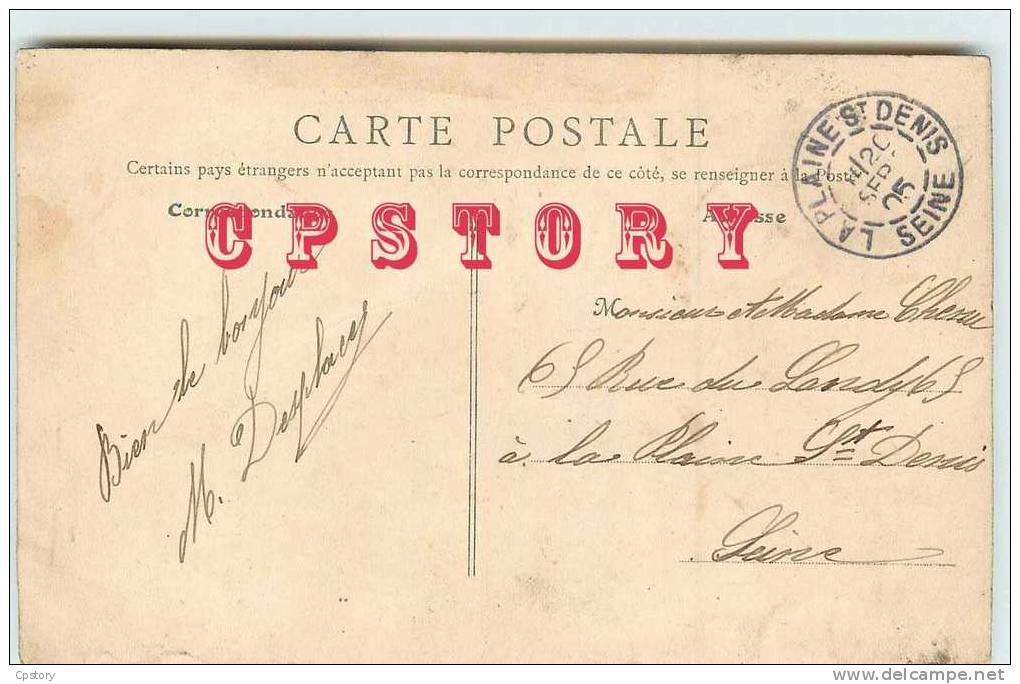 CARTE POSTALE
Certains pays étrangers n'acceptant pas la correspondance de ce côté, se renseigner à la Poste
Correspondance
Adresse
CPSTORY
LA PLAINE ST DENIS
20
SEPT
05
SEINE
Bien le bonjour
M. Desplaces
Monsieur et Madame
65 Rue du Landy 65
à la Plaine St Denis
Seine
Cpstory
delcampe.net